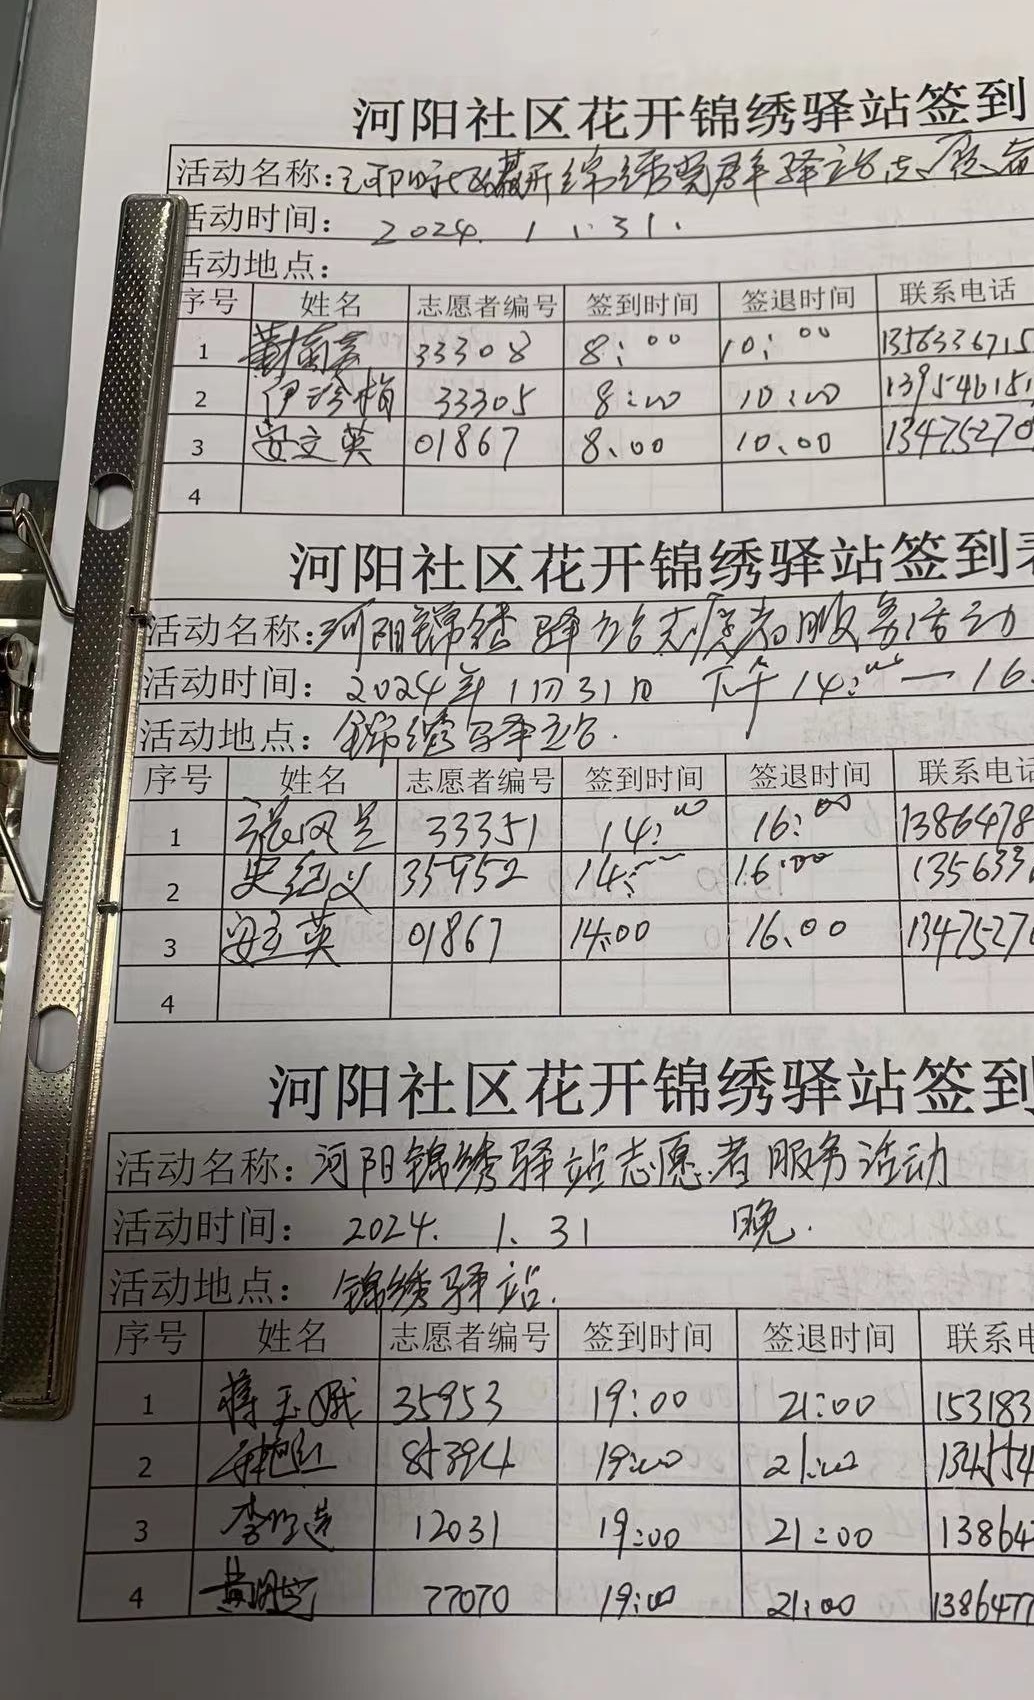 河阳社区花开锦绣驿站签到
活动名称:河阳社区花开锦绣党群驿站志愿者
活动时间: 2024. 1. 31.
活动地点:
序号 姓名 志愿者编号 签到时间 签退时间 联系电话
1 33308 8:00 10:00 1356336715
2 伊玲梅 33305 8:00 10:00 139546151
3 安立英 01867 8.00 10.00 13475270
4
河阳社区花开锦绣驿站签到表
活动名称:河阳锦绣驿站志愿者服务活动
活动时间: 2024年1月31日 下午14:00—16
活动地点: 锦绣驿站.
序号 姓名 志愿者编号 签到时间 签退时间 联系电话
1 张凤兰 33351 14:00 16:00 1386478
2 史纪义 35952 14:00 16:00 135633
3 安立英 01867 14:00 16.00 1347527
4
河阳社区花开锦绣驿站签到
活动名称: 河阳锦绣驿站志愿者服务活动
活动时间: 2024. 1. 31 晚.
活动地点: 锦绣驿站.
序号 姓名 志愿者编号 签到时间 签退时间 联系电
1 蒋玉娥 35953 19:00 21:00 153183
2 85394 19:00 21:00 134554
3 12031 19:00 21:00 13864
4 77070 19:00 21:00 1386477